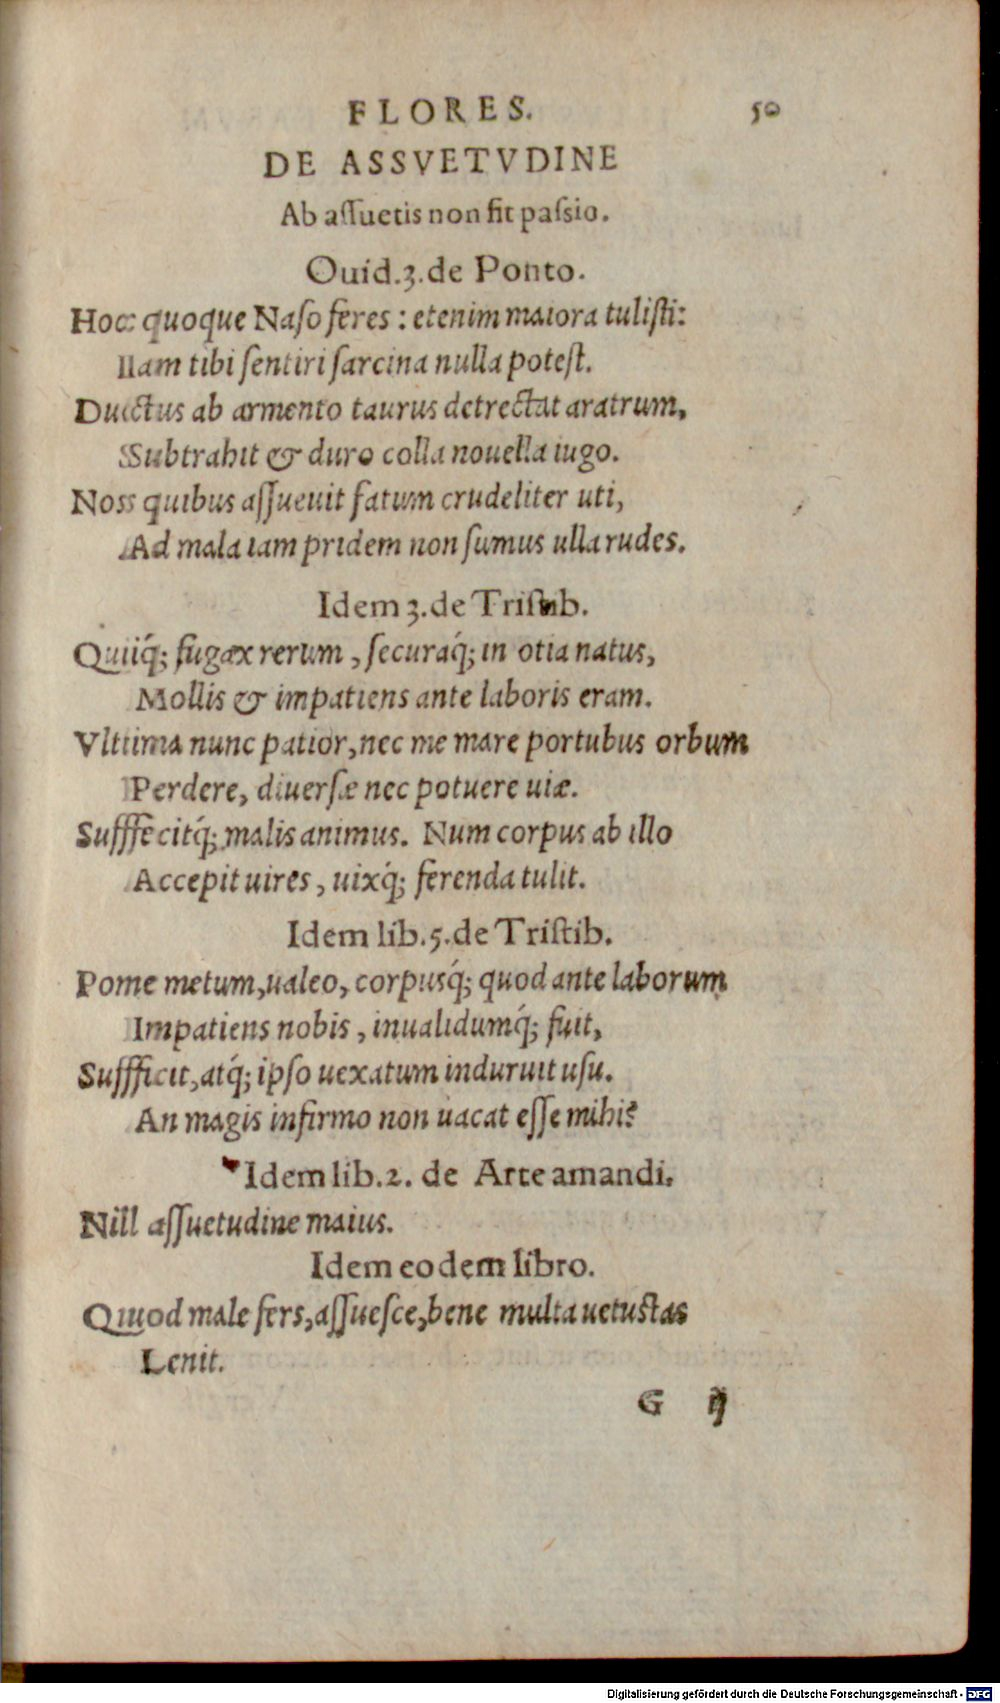 FLORES. 50
DE ASSVETVDINE
Ab aſſuetis non fit paſsio.
Ouid.3.de Ponto.
Hoc quoque Naſo feres : etenim maiora tuliſti:
Iam tibi ſentiri ſarcina nulla poteſt.
Ductus ab armento taurus detrectat aratrum,
Subtrahit & duro colla nouella iugo.
Nos quibus aſſueuit fatum crudeliter uti,
Ad mala iam pridem non ſumus ulla rudes.
Idem 3.de Triſtib.
Quiq́; fugax rerum , ſecuraq́; in otia natus,
Mollis & impatiens ante laboris eram.
Vltima nunc patior, nec me mare portubus orbum
Perdere, diuerſæ nec potuere uiæ.
Suffecitq́; malis animus. Num corpus ab illo
Accepit uires , uixq́; ferenda tulit.
Idem lib.5.de Triſtib.
Pone metum, ualeo, corpusq́; quod ante laborum
Impatiens nobis , inualidumq́; fuit,
Sufficit, atq́; ipſo uexatum induruit uſu.
An magis infirmo non uacat eſſe mihi?
Idem lib.2. de Arte amandi.
Nil aſſuetudine maius.
Idem eodem libro.
Quod male fers, aſſueſce, bene multa uetuſtas
Lenit.
G ij
Digitalisierung gefördert durch die Deutsche Forschungsgemeinschaft - DFG